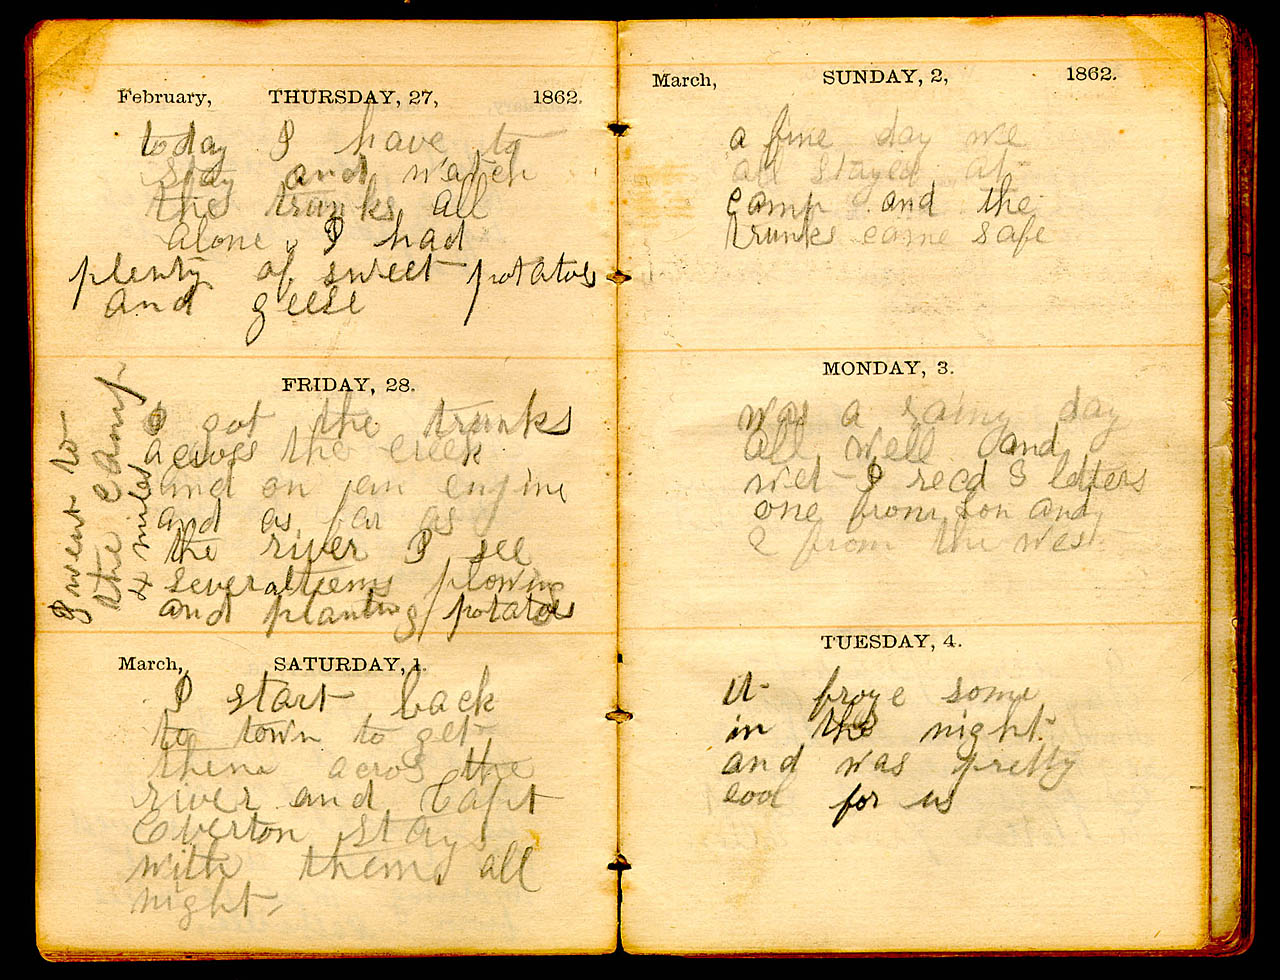 February, THURSDAY, 27, 1862.
today I have to
stay and watch
the trunks all
alone, I had
plenty of sweet potatos
and geese
FRIDAY, 28.
I got the trunks
across the creek
and on an engine
and as far as
the river I see
several teems plowing
and planting potatos
I went to
the Camp
4 miles
March, SATURDAY, 1.
I start back
to town to get
them acros the
river and Capt
Everton stays
with them all
night
March, SUNDAY, 2, 1862.
a fine day we
all stayed at
camp and the
trunks came safe
MONDAY, 3.
was a rainy day
all well and
wet I recd 3 letters
one from Son Andy
2 from the west
TUESDAY, 4.
it froze some
in the night.
and was pretty
cool for us